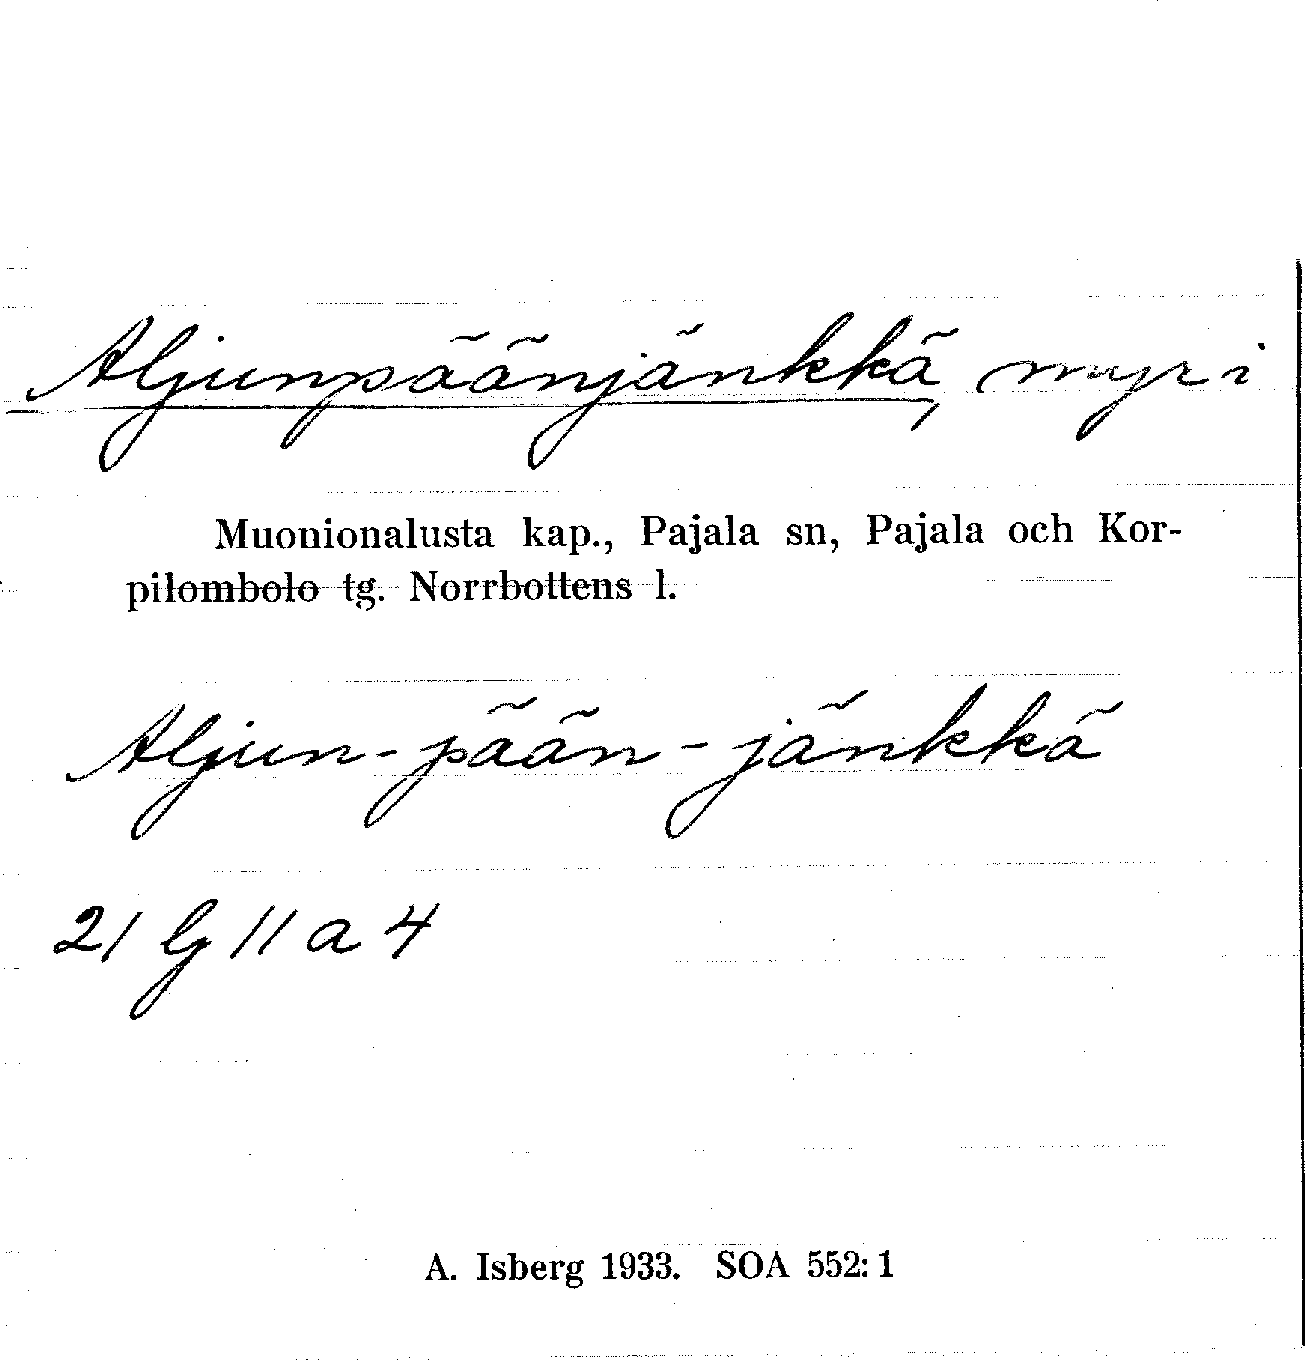 Aljunpäänjänkkä, myr i
Muonionalusta kap., Pajala sn, Pajala och Kor-
pilombolo tg. Norrbottens l.
Aljun-pään-jänkkä
21 lj 11 a 4
A. Isberg 1933. SOA 552:1